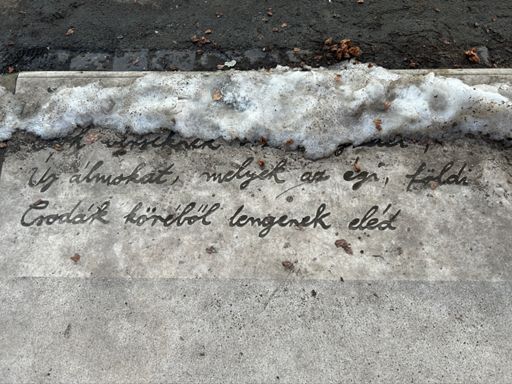 verseknek
Új álmokat, melyek az égi, földi
Csodák köréből lengenek eléd